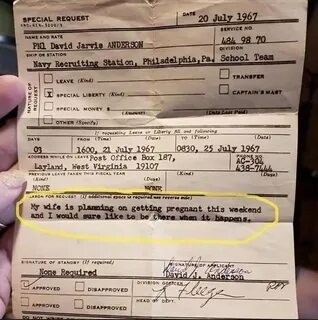 SPECIAL REQUEST
DATE
20 July 1967
NAME AND RATE
SERVICE NO.
PN1 David Jarvis ANDERSON
484 98 70
SHIP OR STATION
DIVISION
Navy Recruiting Station, Philadelphia, Pa.
School Team
NATURE OF REQUEST
LEAVE (Kind)
TRANSFER
X SPECIAL LIBERTY (Kind)
CAPTAIN'S MAST
SPECIAL MONEY $
(Amount)
(Date Last Paid)
OTHER (Specify)
If requesting Leave or Liberty fill out following
NO. DAYS
FROM (Time) (Date)
TO (Time) (Date)
03
1600, 21 July 1967
0830, 25 July 1967
ADDRESS WHILE ON LEAVE
Post Office Box 187,
Layland, West Virginia 19107
PREVIOUS LEAVE TAKEN THIS FISCAL YEAR
NONE
NONE
REASON FOR REQUEST (If additional space is required use reverse side)
My wife is planning on getting pregnant this weekend
and I would sure like to be there when it happens.
SIGNATURE OF STANDBY (If Required)
SIGNATURE OF APPLICANT
None Required
David J. Anderson
APPROVED
DISAPPROVED
DIVISION OFFICER
HEAD OF DEPT.